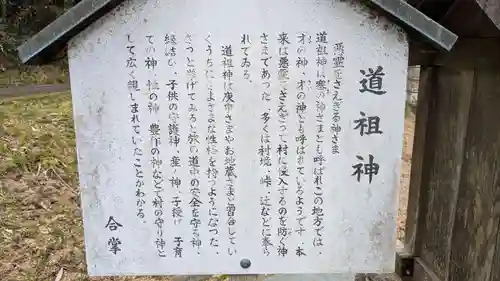 道祖神
悪霊をさえぎる神さま
道祖神は塞の神さまとも呼ばれこの地方では、
才の神、才の神とも呼ばれているようです。本
来は悪霊をさえぎって村に侵入するのを防ぐ神
さまであった。多くは村境、峠、辻などに奉ら
れてゐる。
道祖神は庚申さまやお地蔵さまと習合してい
くうちにさまざまな性格を持つようになった。
ざっと挙げてみると旅の道中の安全を守る神、
縁結び、子供の守護神、産ノ神、子授け、子育
ての神、性の神、豊作の神などで村の守り神と
して広く親しまれていたことがわかる。
合掌